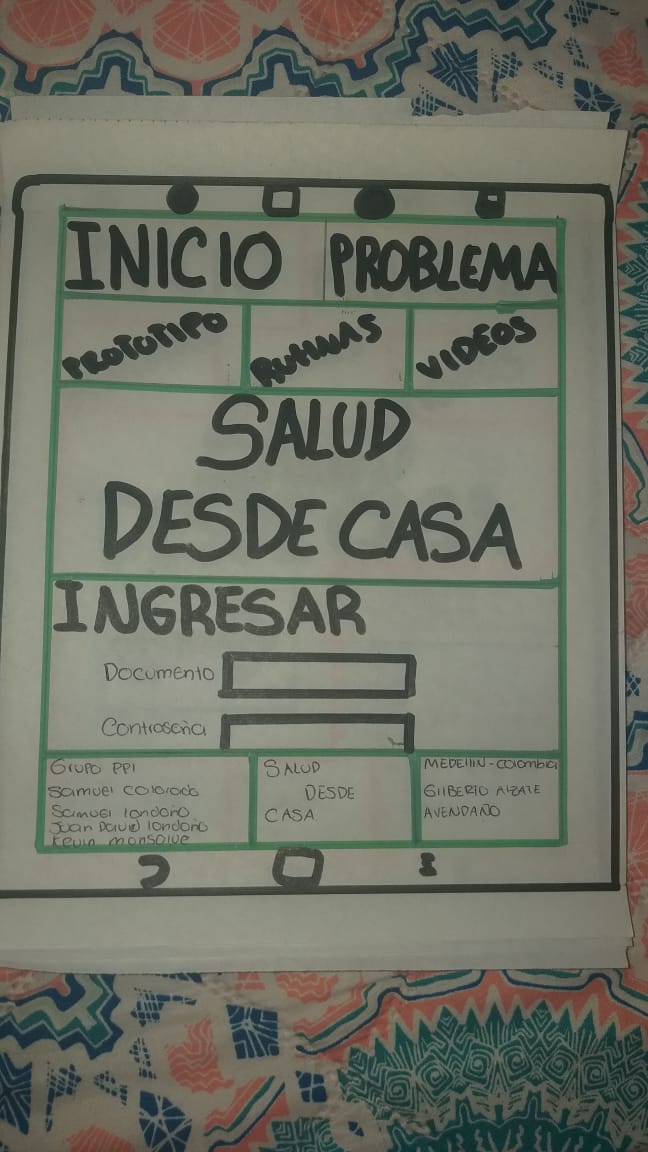 INICIO PROBLEMA
PROTOTIPO VIDEOS
SALUD
DESDE CASA
INGRESAR
Documento
Contraseña
Grupo PPI
Samuel Colorado
Samuel londoño
Juan David londoño
Kevin monsalve
SALUD
DESDE
CASA
MEDEllIN-Colombia
GIlBERTO AlZATE
AVENDAÑO